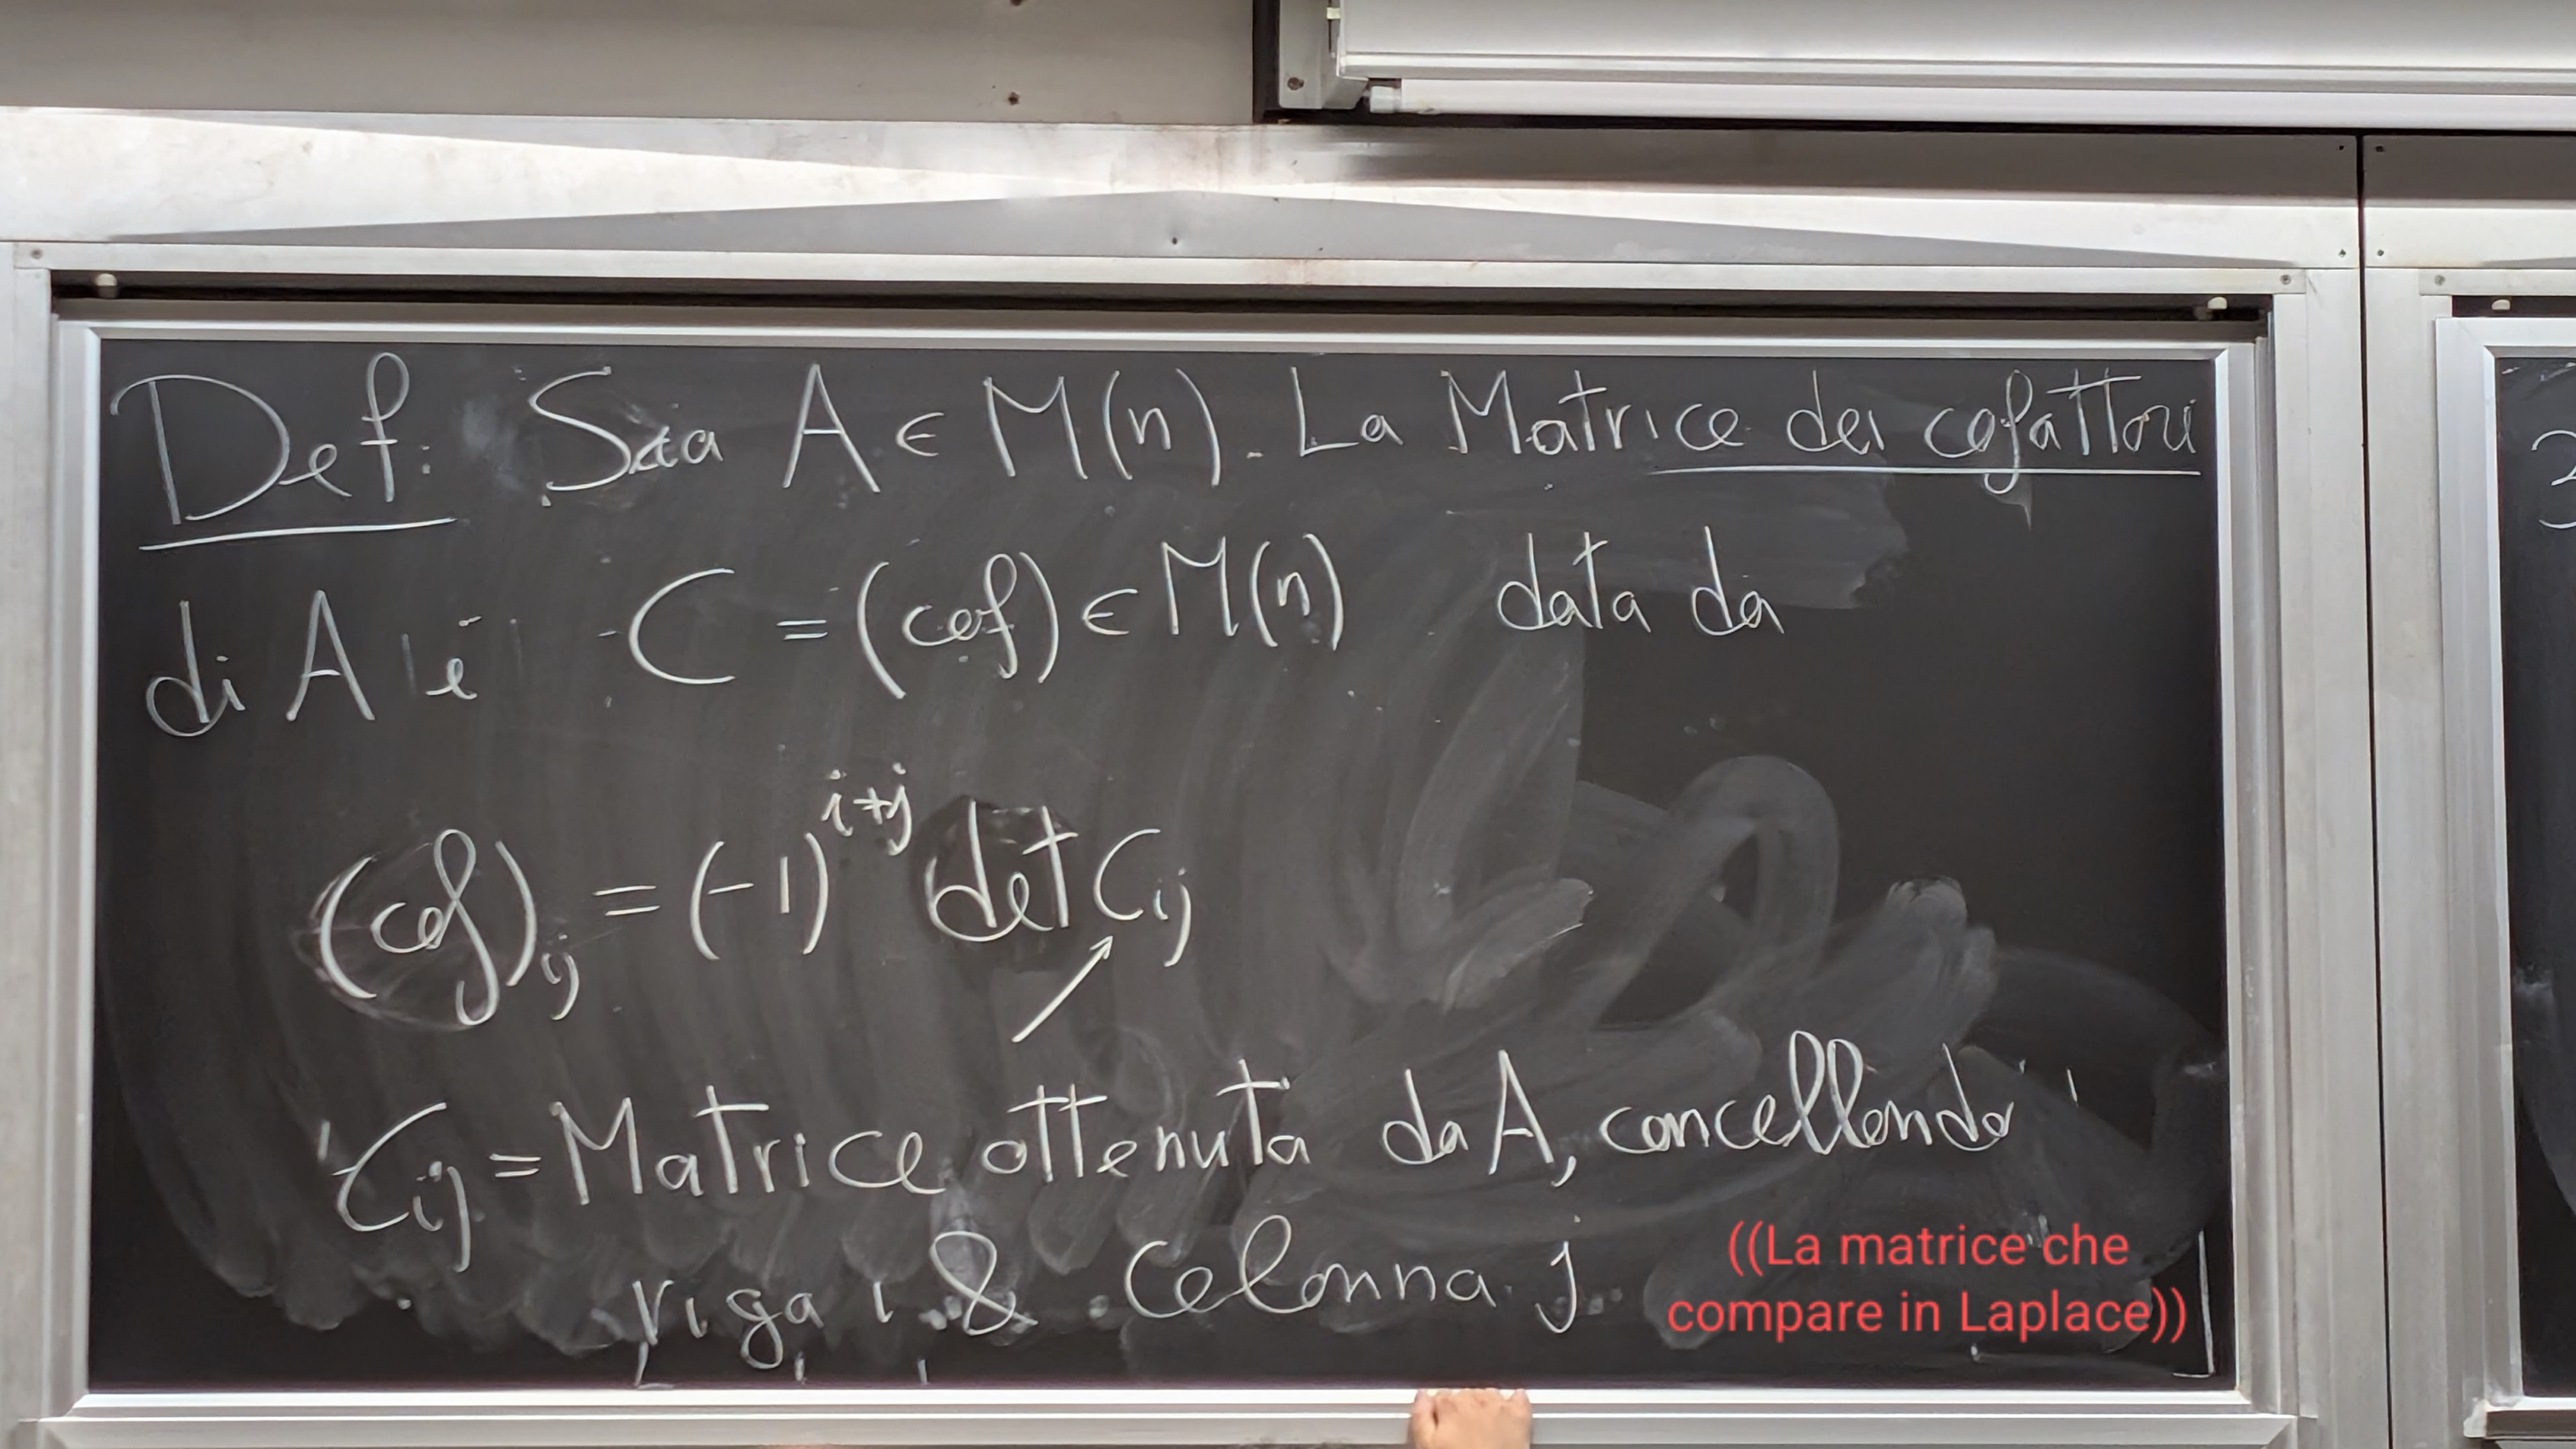 Def: Sia A ∈ M(n). La Matrice dei cofattori
di A è C = (cof) ∈ M(n) data da
(cof)ij = (-1)^{i+j} det Cij
Cij = Matrice ottenuta da A, cancellando
riga i & Colonna j.
((La matrice che
compare in Laplace))